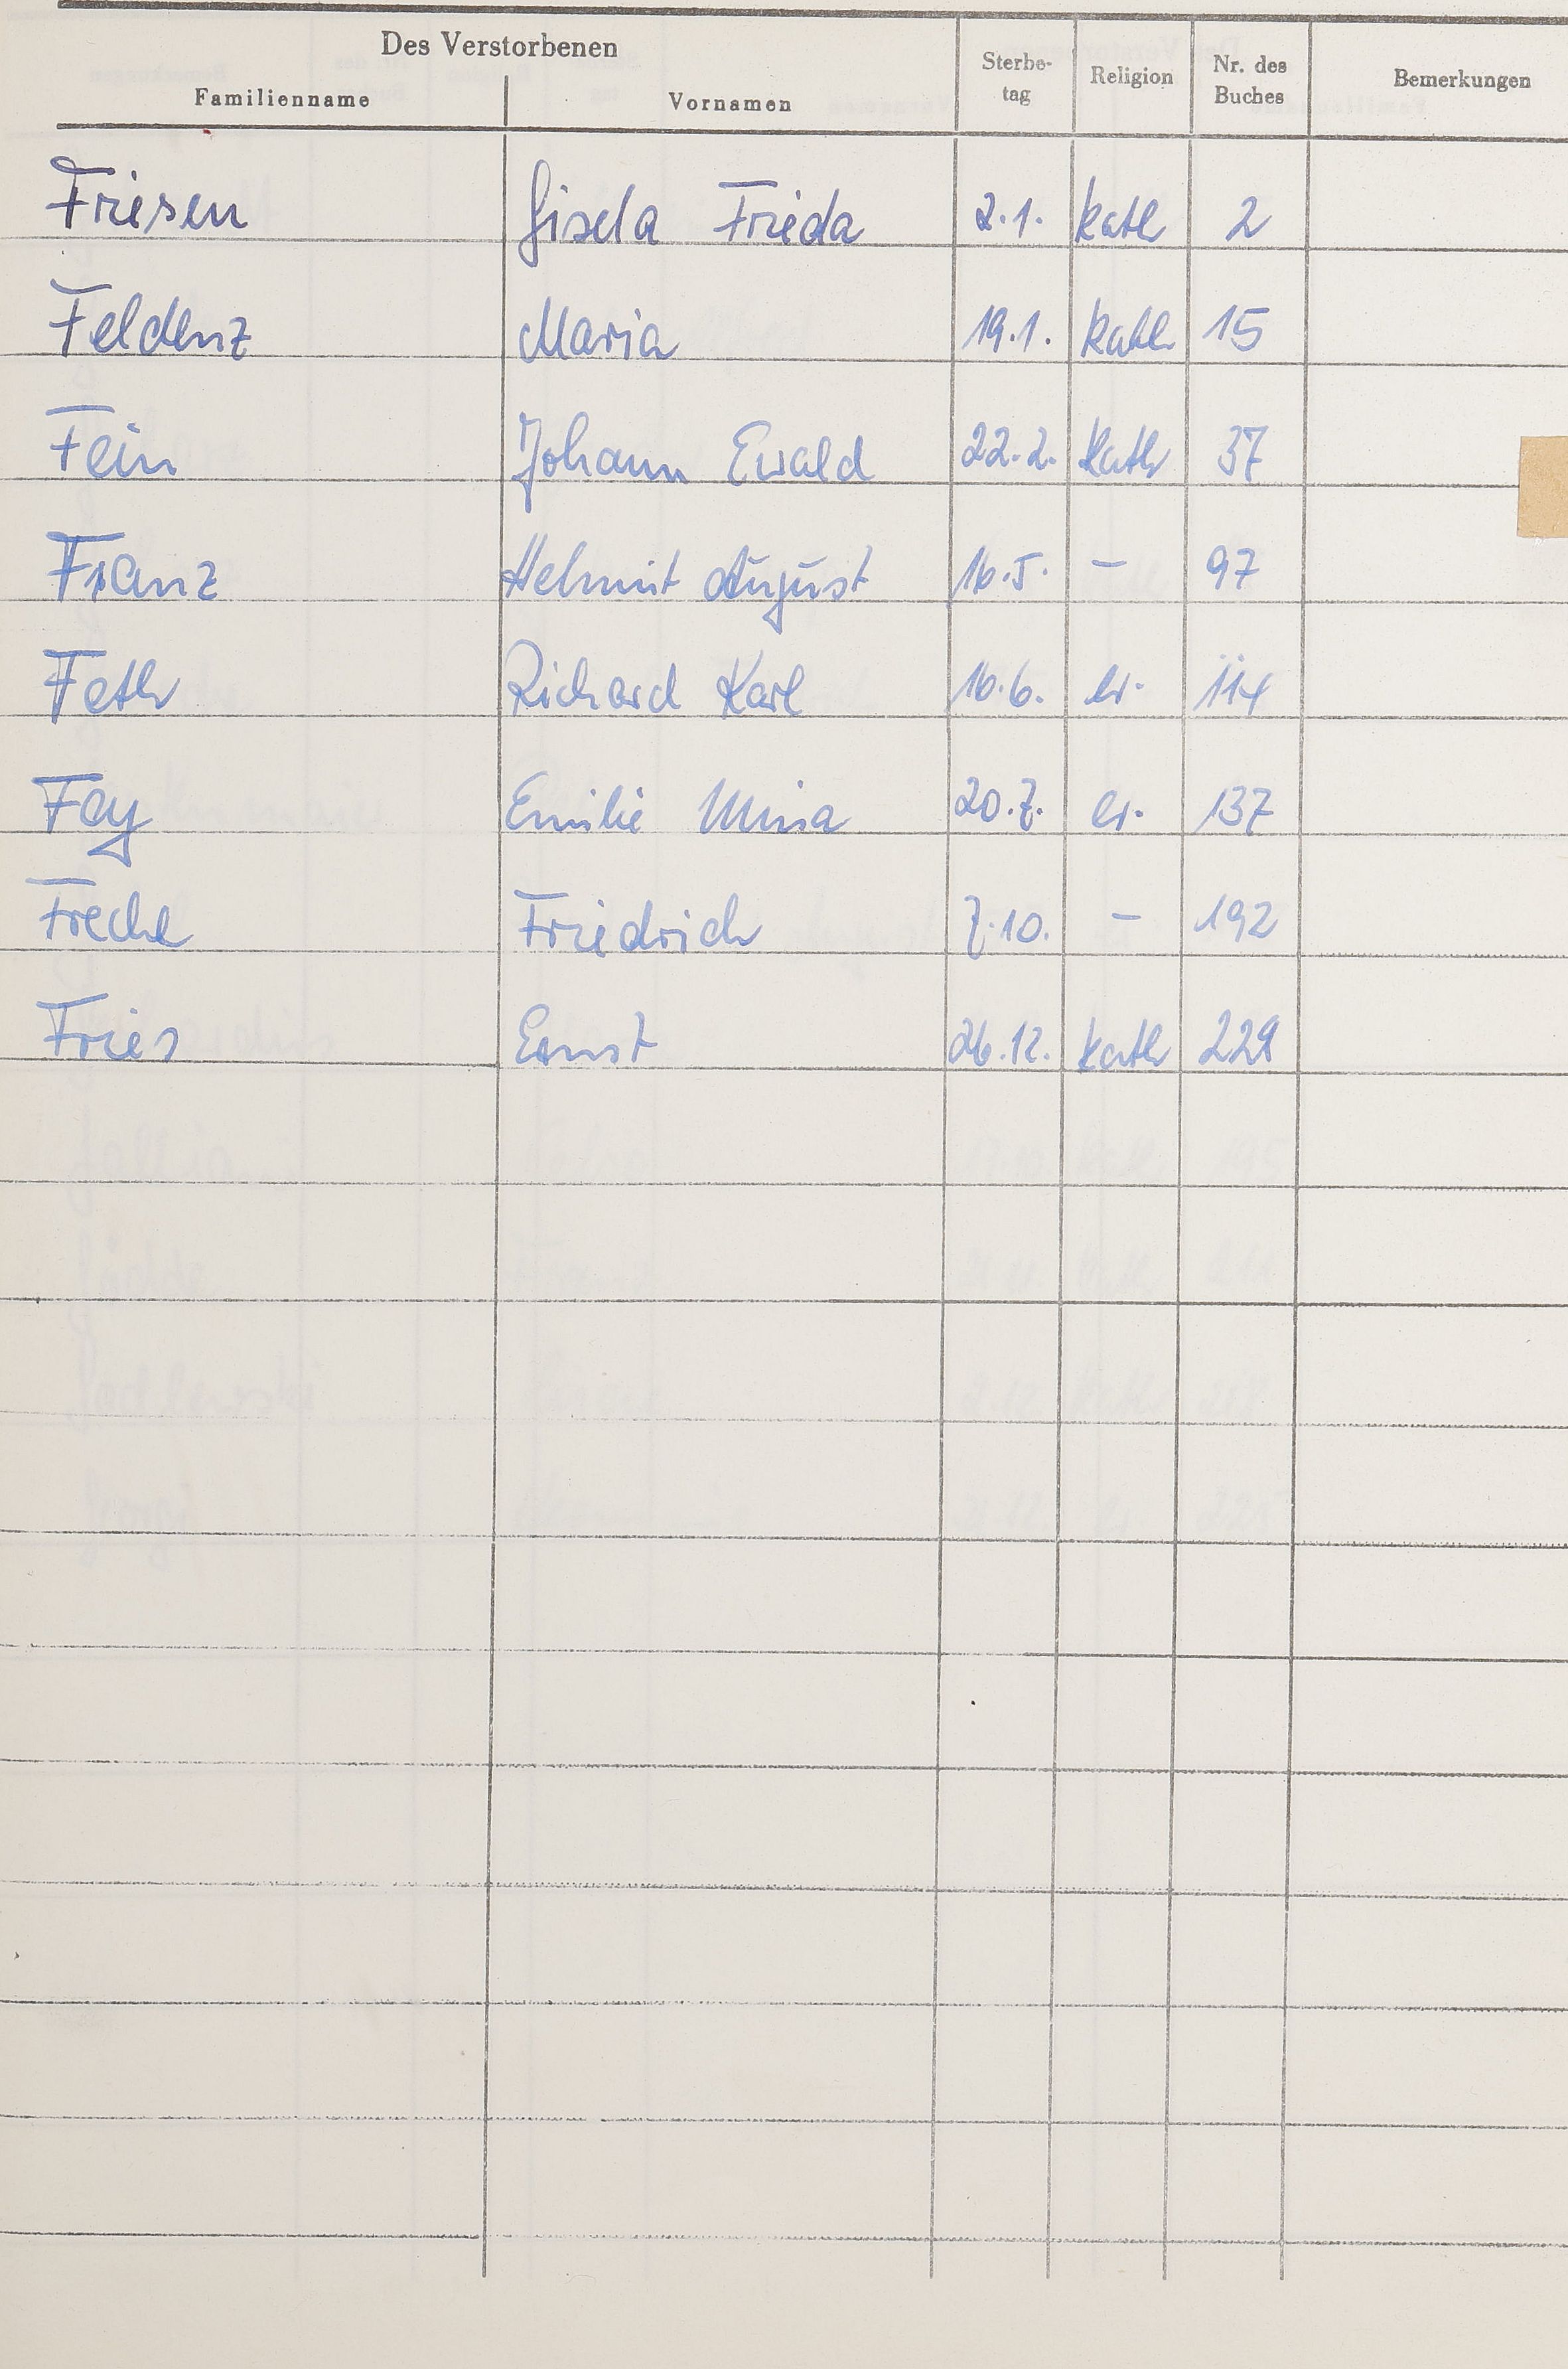 Des Verstorbenen
Familienname Vornamen Sterbe-tag Religion Nr. des Buches Bemerkungen
Friesen Gisela Frieda 2.1. kath 2
Feldenz Maria 19.1. kath 15
Fein Johann Ewald 22.2. kath 37
Franz Helmut August 16.5. – 97
Feth Richard Karl 16.6. ev. 114
Fay Emilie Mina 20.7. ev. 137
Friedrich 7.10. – 192
Fries Ernst 26.12. kath 229